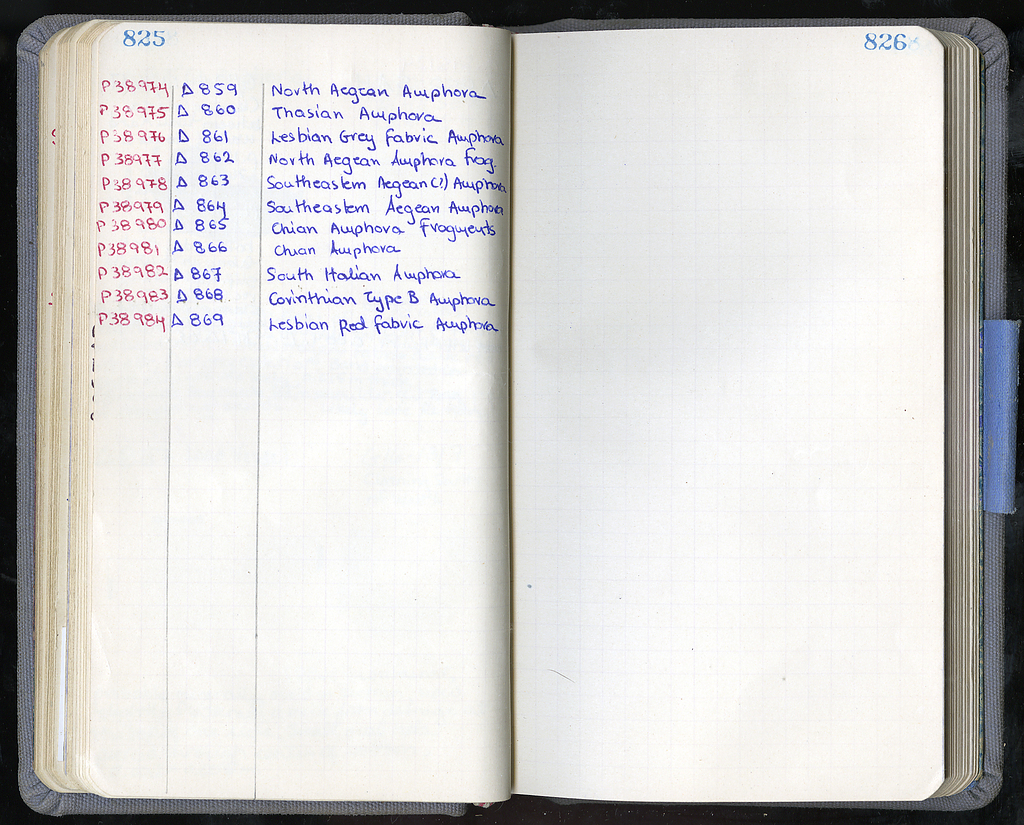 825
P38974 Δ 859 North Aegean Amphora
P38975 Δ 860 Thasian Amphora
P38976 Δ 861 Lesbian Grey fabric Amphora
P38977 Δ 862 North Aegean Amphora frag.
P38978 Δ 863 Southeastern Aegean(?) Amphora
P38979 Δ 864 Southeastern Aegean Amphora
P38980 Δ 865 Chian Amphora Fragments
P38981 Δ 866 Chian Amphora
P38982 Δ 867 South Italian Amphora
P38983 Δ 868 Corinthian Type B Amphora
P38984 Δ 869 Lesbian Red fabric Amphora
826